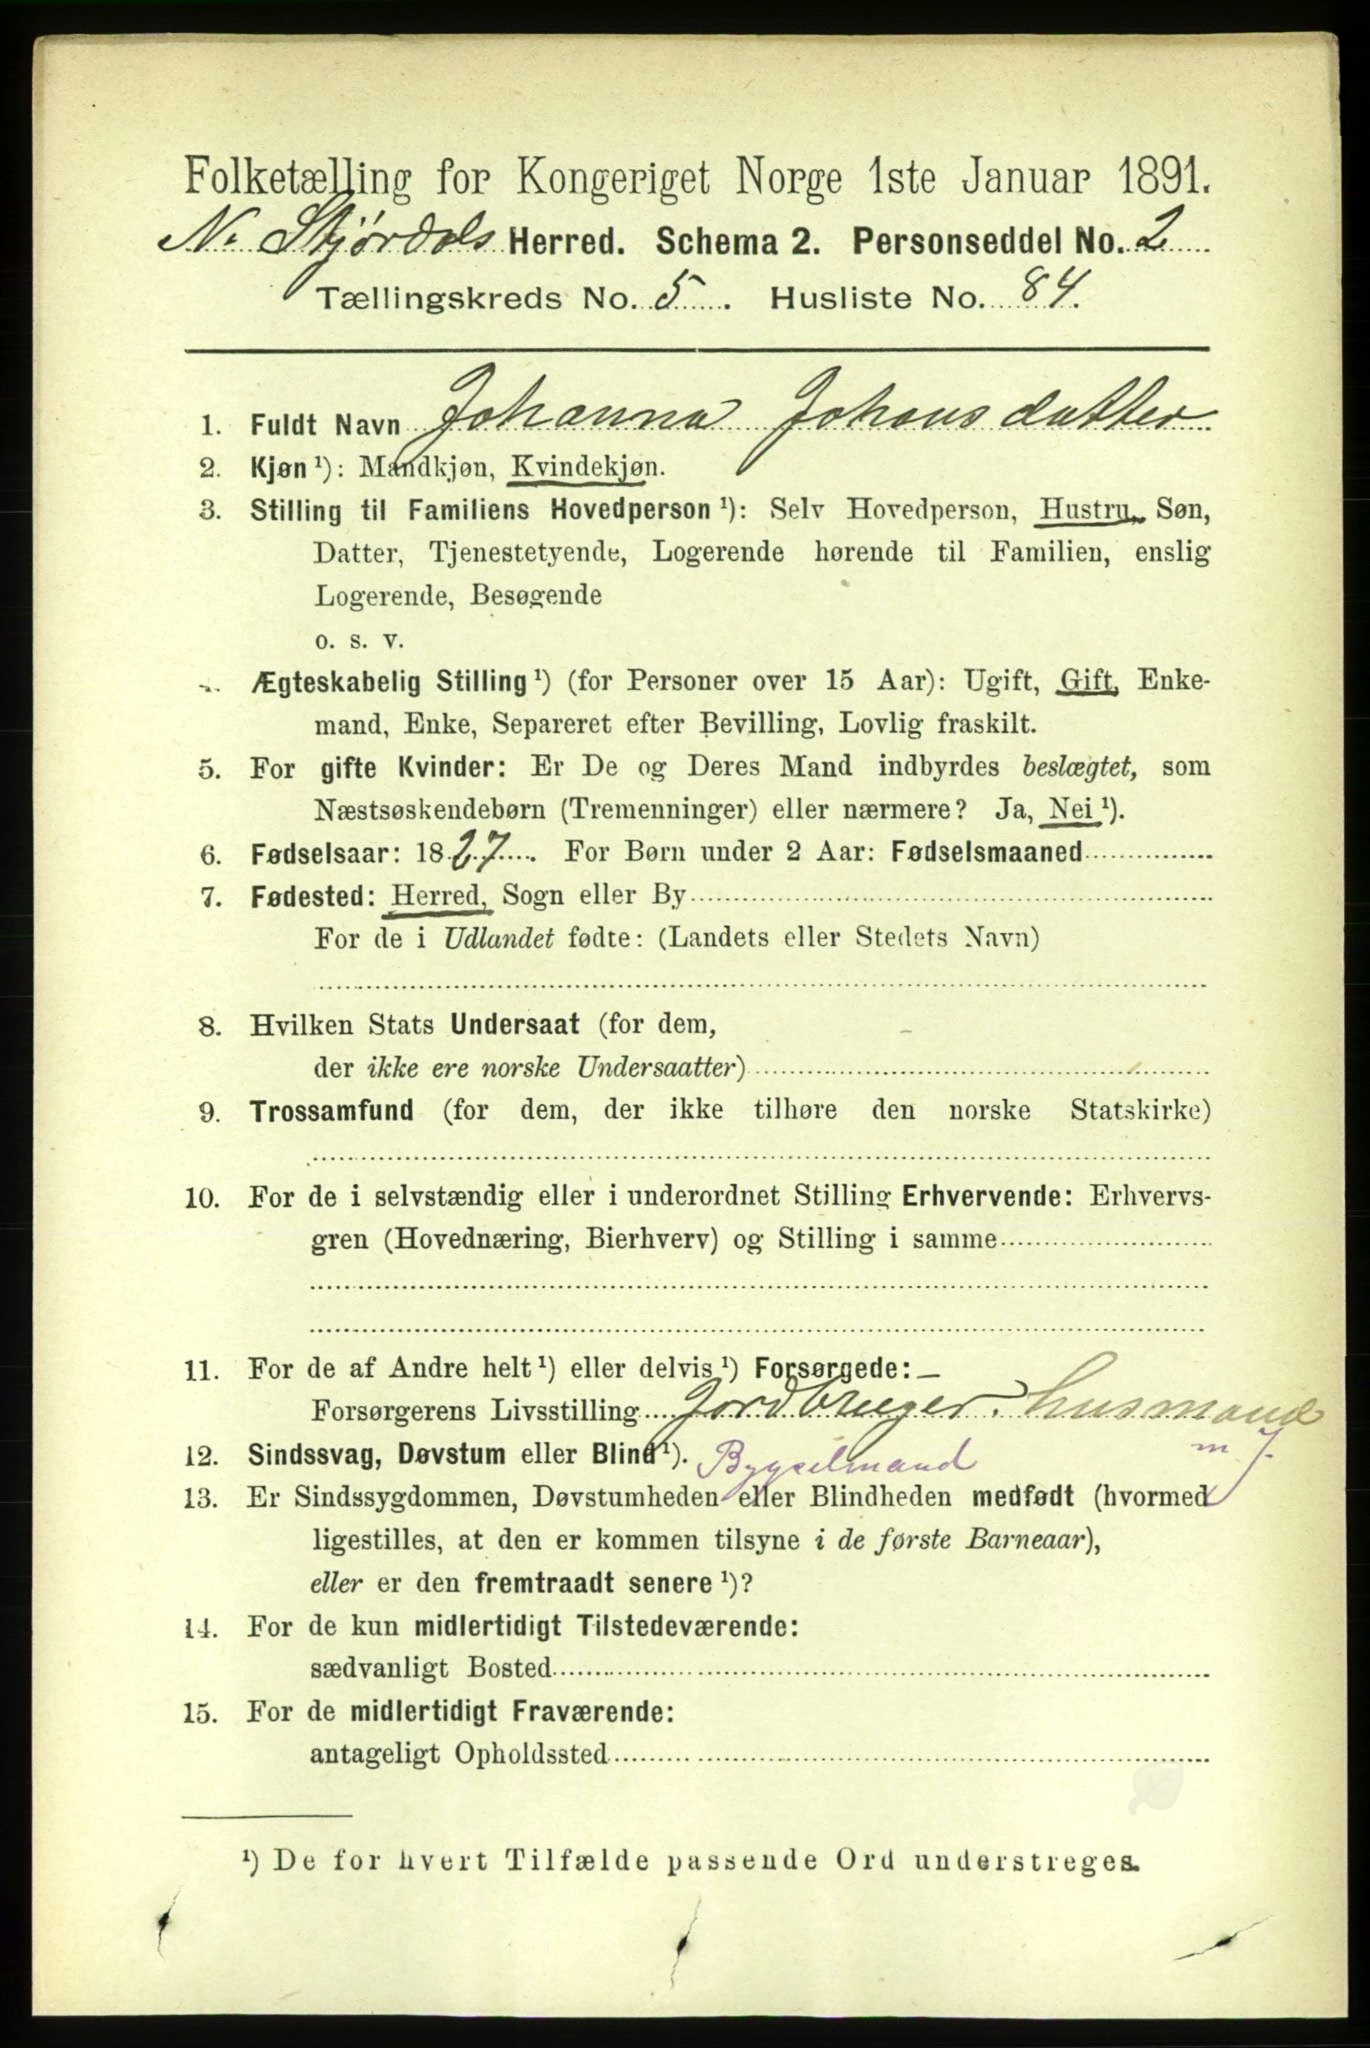 Folketælling for Kongeriget Norge 1ste Januar 1891.
N. Stjørdals Herred. Schema 2. Personseddel No. 2
Tællingskreds No. 5. Husliste No. 84.
1. Fuldt Navn Johanna Johansdatter
2. Kjøn ¹): Mandkjøn, Kvindekjøn.
3. Stilling til Familiens Hovedperson ¹): Selv Hovedperson, Hustru, Søn,
Datter, Tjenestetyende, Logerende hørende til Familien, enslig
Logerende, Besøgende
o. s. v.
Ægteskabelig Stilling ¹) (for Personer over 15 Aar): Ugift, Gift, Enke-
mand, Enke, Separeret efter Bevilling, Lovlig fraskilt.
5. For gifte Kvinder: Er De og Deres Mand indbyrdes beslægtet, som
Næstsøskendebørn (Tremenninger) eller nærmere? Ja, Nei ¹).
6. Fødselsaar: 1827. For Børn under 2 Aar: Fødselsmaaned
7. Fødested: Herred, Sogn eller By
For de i Udlandet fødte: (Landets eller Stedets Navn)
8. Hvilken Stats Undersaat (for dem,
der ikke ere norske Undersaatter)
9. Trossamfund (for dem, der ikke tilhøre den norske Statskirke)
10. For de i selvstændig eller i underordnet Stilling Erhvervende: Erhvervs-
gren (Hovednæring, Bierhverv) og Stilling i samme
11. For de af Andre helt ¹) eller delvis ¹) Forsørgede:
Forsørgerens Livsstilling Jordbruger. husmand
m J.
12. Sindssvag, Døvstum eller Blind ¹). Bygselmand
13. Er Sindssygdommen, Døvstumheden eller Blindheden medfødt (hvormed
ligestilles, at den er kommen tilsyne i de første Barneaar),
eller er den fremtraadt senere ¹)?
14. For de kun midlertidigt Tilstedeværende:
sædvanligt Bosted
15. For de midlertidigt Fraværende:
antageligt Opholdssted
¹) De for hvert Tilfælde passende Ord understreges.